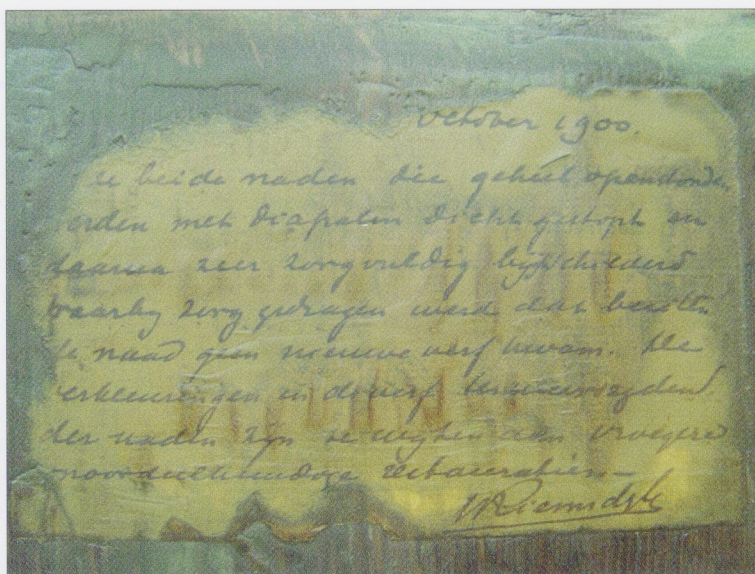 October 1900.
de beide naden die geheel openstonden
erden met diapalm dicht gestopt en
daarna zeer zorgvuldig bijgeschilderd
waarby zorg gedragen werd dat buiten
de naad geen nieuwe verf kwam. De
verkleuringen in de verf
der naden zijn te wijten aan vroegere
onoordeelkundige restauratiën —